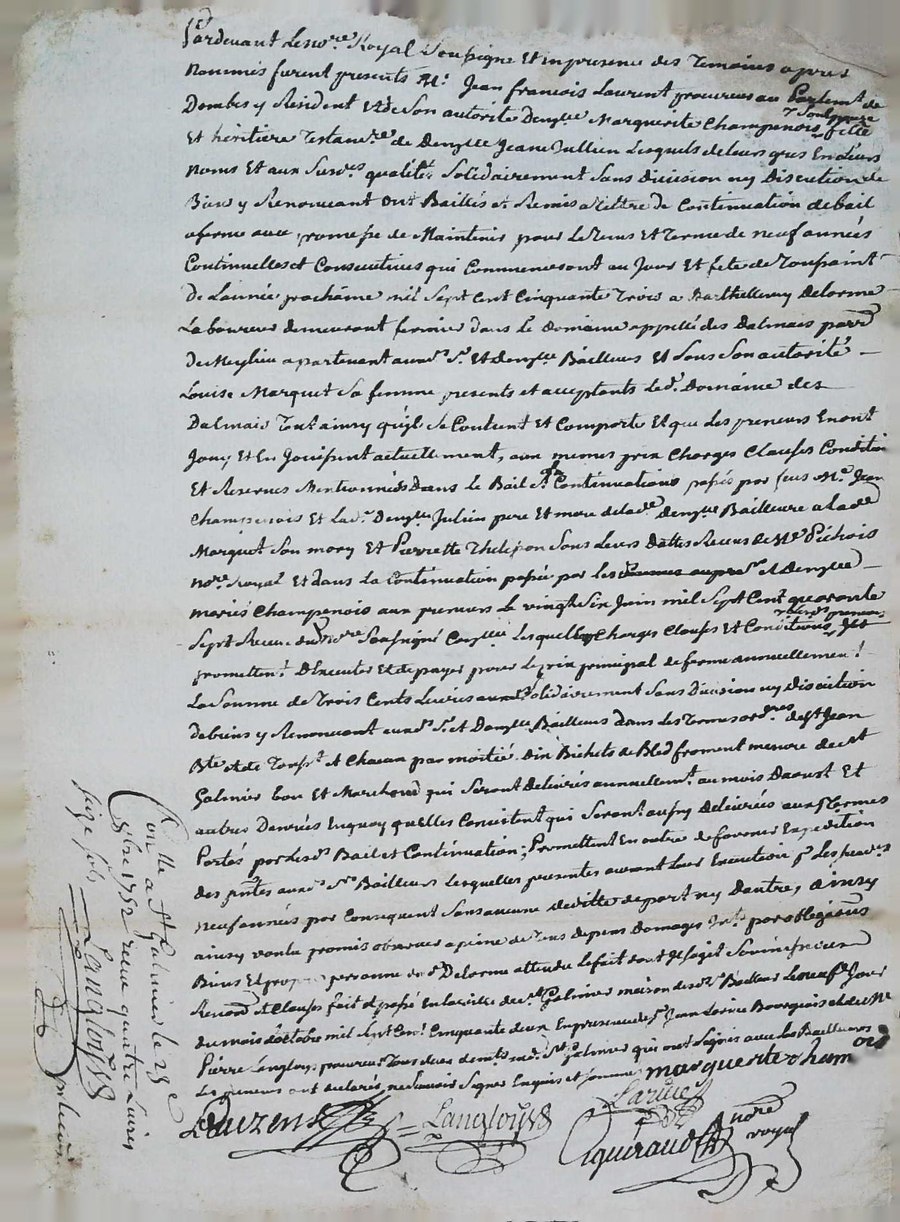 Pardevant Le no.re Royal Soussigne Et en presence des Temoins apres
Nommés furent presents M.e Jean francois Laurent procureur au Parlem.t de
Dombes y Résident et de Son autorité Dem.lle Marguerite Champenois fille
Et héritiere Testam.re de Dem.lle Jeanne Jullien Lesquels de leurs grés En Leurs
noms Et aux Susd.es qualités Solidairement Sans division ny Discution de
Biens y Renoncant ont Baillés et Remis a tittre de Continuation de bail
a ferme avec promesse de Maintenir pour Le tems Et terme de neuf années
Continuelles et Consecutives qui Commenceront au Jour Et fete de Toussaint
De Lannée prochaine mil Sept Cent Cinquante Trois a Barthellemy Delorme
Laboureur demeurant fermier dans Le Domaine appellé des Dalmais parr.e
De apartenant aux d. S.r Et dem.lle Bailleurs Et Sous Son autorité
Louise Marquet Sa femme presents et acceptants Led. Domaine des
Dalmais Tout ainsy qu'il Se Contient Et Comporte Et que Les preneurs En ont
Jouy Et En Jouissent actuellement, aux memes prix Charges Clauses Condition
Et Reserves Mentionnées Dans Le Bail et Continuation passés par feus M.e Jean
Champenois Et Lad. Dem.lle Julien pere Et mere de lad.e dem.lle Bailleure a Lad.e
Marquet Son mary Et Pierrette Sous Leurs Dattes Receus de M.e Pichois
no.re Royal Et dans La Continuation passée par les
mariés Champenois aux preneurs Le vingt Six Juin mil Sept Cent quarante
Sept Receue dud. no.re Soussigné Lesquelles Charges Clauses Et Conditions
promettent D'Executer Et de payer pour Le prix principal de ferme annuellement
La Somme de Trois Cents Livres Solidairement Sans Division ny discution
De biens y Renoncant aux d. S.r et Dem.lle Bailleurs dans Les Termes ord.res de S.t Jean
B.te et de Touss.t et Chacun par moitié, dix Bichets de Bled froment mesure de S.t
Galmier bon Et Marchand qui Seront delivrés annuellem.t au mois Daoust Et
autres Denrées En quoy quelles Consistent qui Seront aussy Delivrées aux termes
Portés par Lesd. Bail et Continuation; Promettent En outre de fournir Expedition
des p.ntes aux d. S.rs Bailleurs Lesquelles presentes auront Leur Execution p.r Les
neuf années par Consequent Sans aucune de part ny Dautre, ainsy
ainsy voulu promis observer a peine de Tous depens Domages Int.s par obligations
Biens Et personne dud. Delorme attendu Le fait dont Il Sagit
Renon.on et Clauses fait et passé En la ville de S.t Galmier maison desd. Bailleurs Le neuf.e Jour
du mois doctobre mil Sept Cent Cinquante deux En presence de S.r Jean Bourgeois et de M.e
Pierre Langlois procureur Tous deux dem.ts aud. S.t Galmier qui ont Signés avec Les Bailleurs
Les preneurs ont déclarés ne Scavoir Signer Enquis et Sommés marguerite cham
ois
Langloys
royal
Con.lle a S.t Galmier le 23.e
8bre 1752 receu quatre Livres
Seize Sols
Langlois